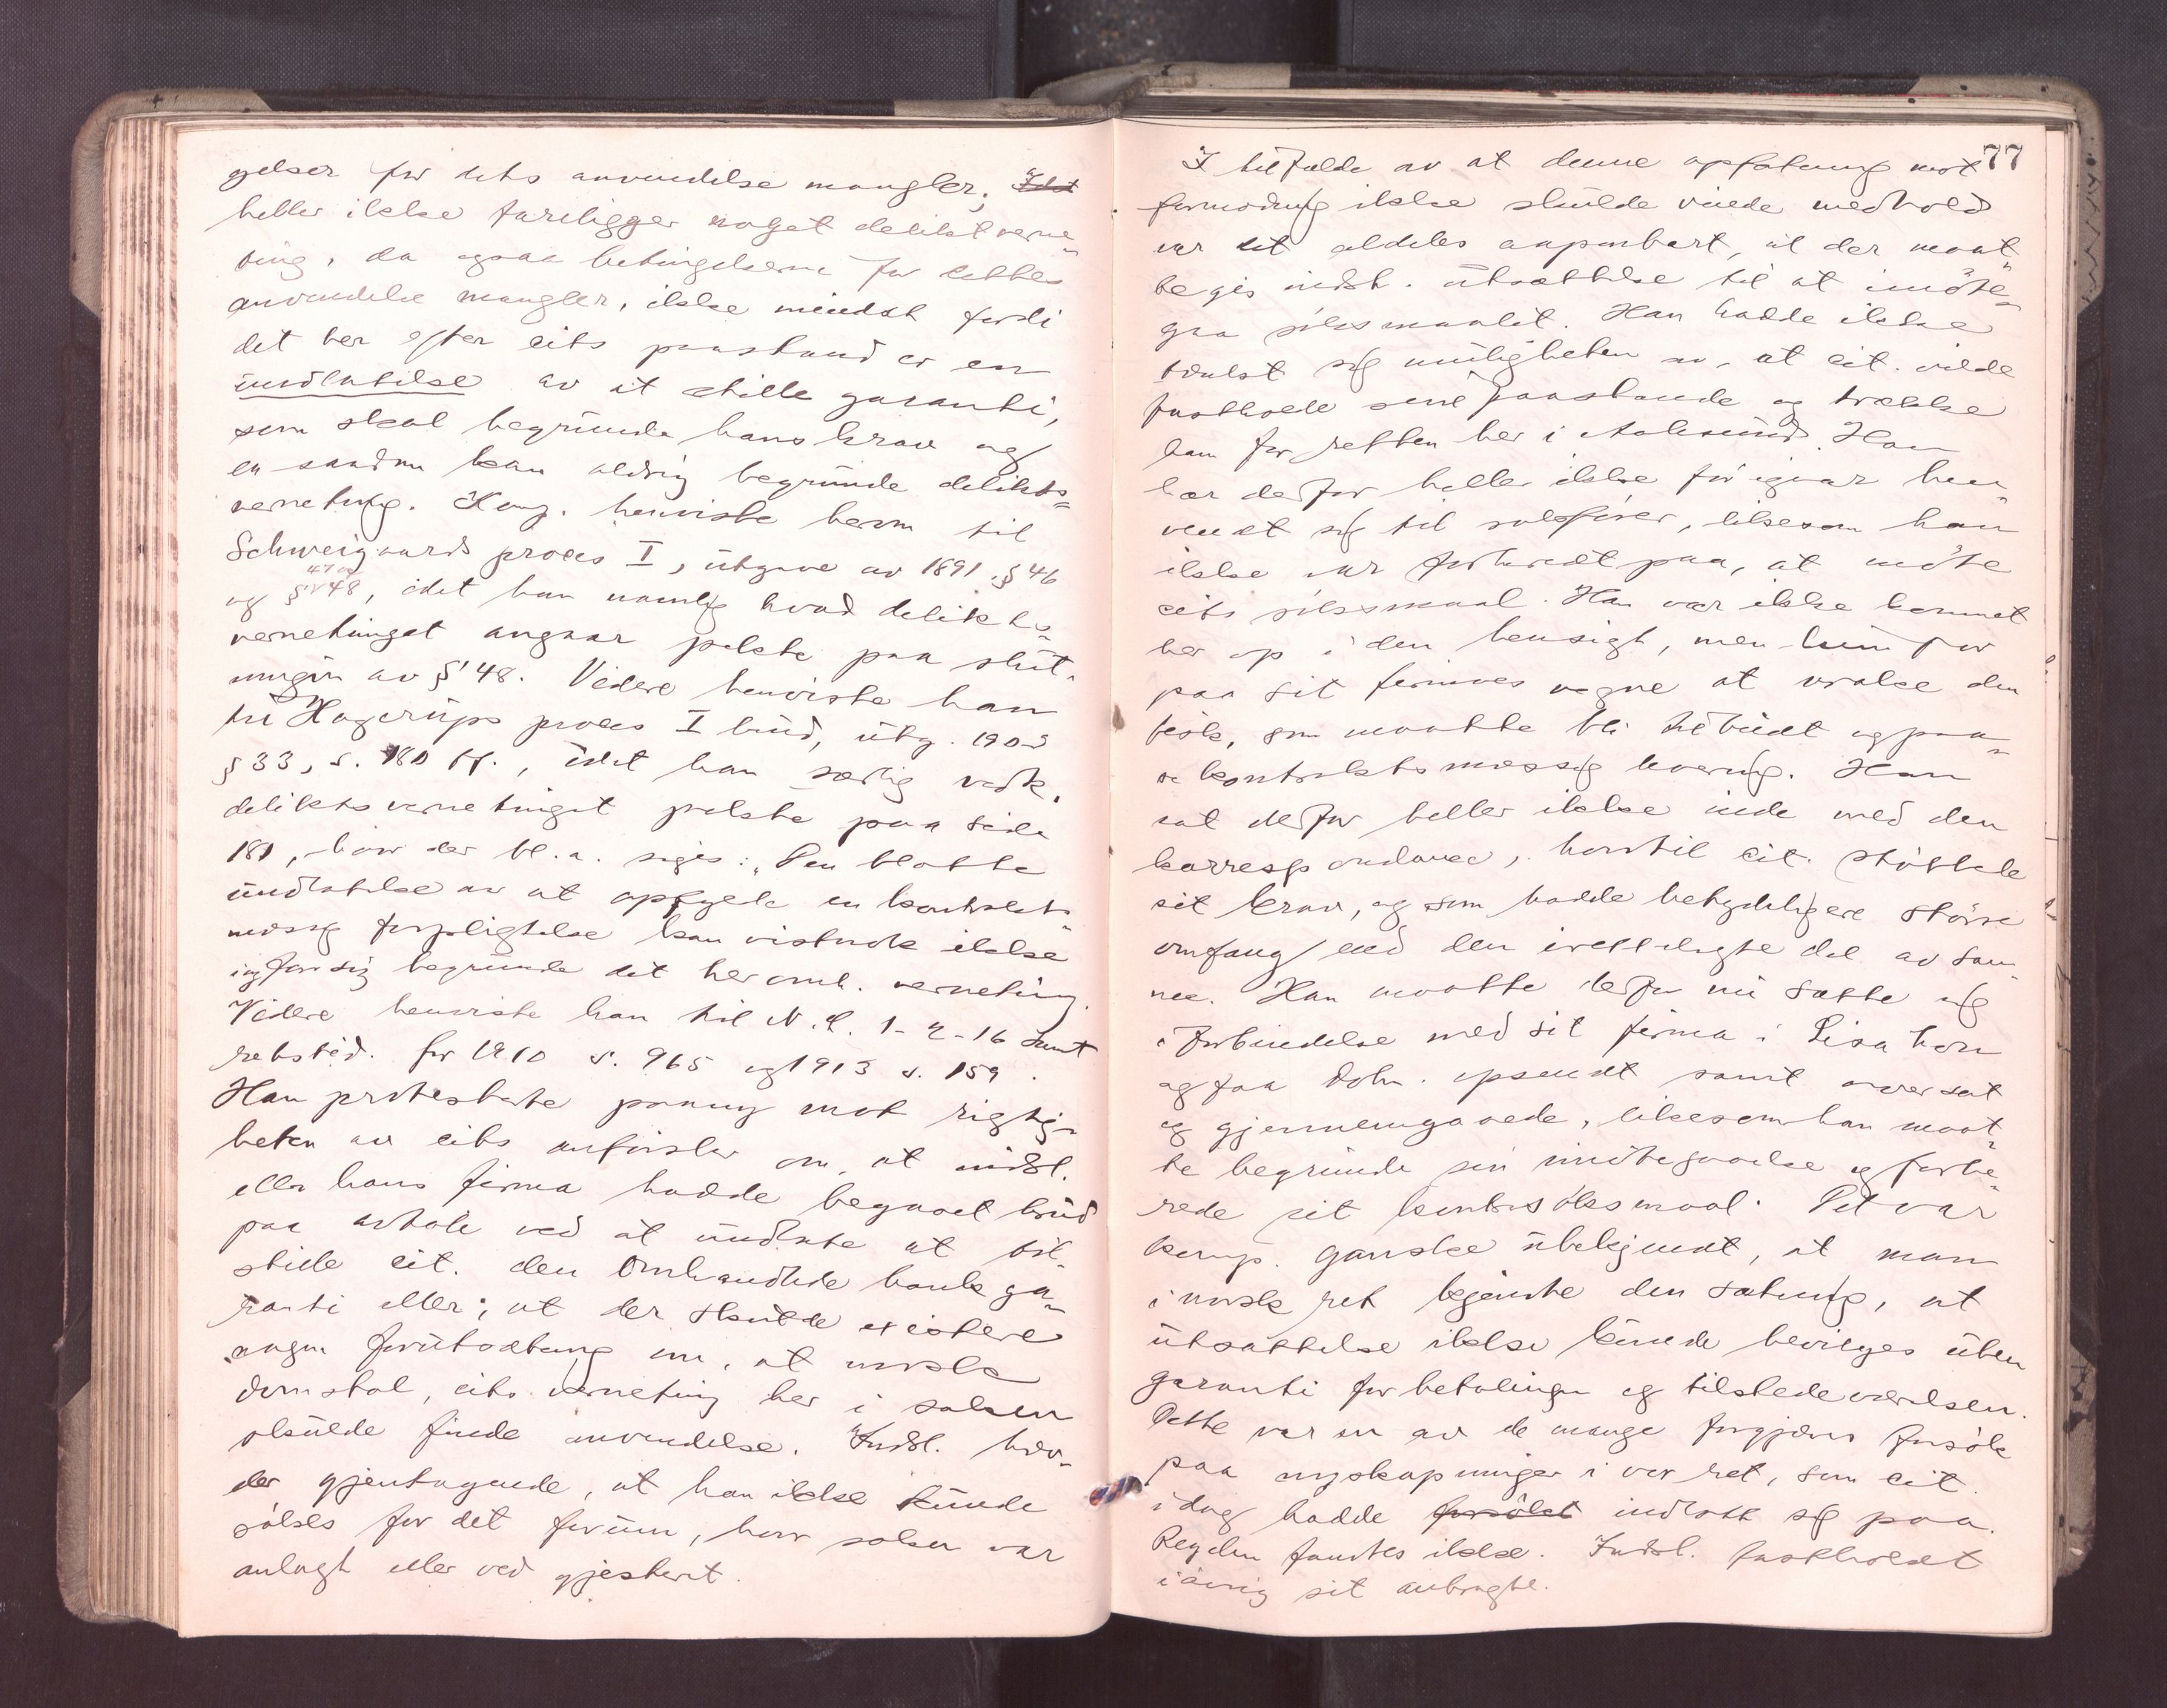 gelser for dets anvendelse mangler, Idet
heller ikke foreligger noget deliktverne-
ting, da ogsaa betingelserne for dettes
anvendelse mangler, ikke mindst fordi
det her efter cits paastand er en
undlatelse av at stille garanti,
som skal begrunde hans krav og
en saadan kan aldrig begrunde delikts-
verneting. Komp. henviste herom til
Schweigaards proces I, utgave av 1891, § 46
47 og
og § 48, idet han navnlig hvad delikts-
vernetinget angaar pekte paa slut-
ningen av § 48. Videre henviste han
til Hagerups proces I bind, utg. 1903
§ 33, s. 180 ff., idet han særlig vedk.
deliktsvernetinget pekte paa side
181, hvor der bl.a. siges: "Den blotte
undlatelse av at opfylde en kontrakts-
mæssig forpligtelse kan vistnok ikke
i og for sig begrunde det her omh. verneting.
Videre henviste han til N.L. 1-2-16 samt
retstid. for 1910 s. 965 og 1913 s. 159.
Han protesterte paany mot rigtig-
heten av cits anførsler om, at indst.
eller hans firma hadde begaaet brud
paa avtale ved at undlate at til-
stille cit. den omhandlede bankga-
ranti eller, at der skulde existere
nogen forutsætning om, at norsk
domstol, cits verneting her i saken
skulde finde anvendelse. Indst. hæv-
der gjentagende, at han ikke kunde
søkes for det forum, hvor saken var
anlagt eller ved gjesteret.
77
I tilfælde av at denne opfatning mot
formodning ikke skulde vinde medhold
var det aldeles aapenbart, at der maat-
te gis indst. utsættelse til at imøte-
gaa søksmaalet. Han hadde ikke
tænkt sig muligheten av, at cit. vilde
fastholde sine paastande og trække
ham for retten her i Aalesund. Han
har derfor heller ikke før igaar hen-
vendt sig til sakfører, likesom han
ikke var forberedt paa, at møte
cits søksmaal. Han var ikke kommet
her op i den hensigt, men kun for
paa sit firmas vegne at vrake den
fisk, som maatte bli tilbudt og paa-
se kontraktsmæssig levering. Han
sat derfor heller ikke inde med den
korrespondance, hvortil cit. støttede
sit krav, og som hadde betydeligere større
omfang end den irettelagte del av sam-
me. Han maatte derfor nu sætte sig
i forbindelse med sit firma i Lissabon
og faa dokn. opsendt samt oversat
og gjennemgaaede, likesom han maat-
te begrunde sin imøtegaaelse og forbe-
rede sit kontrasøksmaal. Det var
komp. ganske ubekjendt, at man
i norsk ret kjendte den sætning, at
utsættelse ikke kunde bevilges uten
garanti for betalingen og tilstedeværelsen.
Dette var en av de mange forgjæves forsøk
paa nyskapninger i vor ret, som cit.
idag hadde forsøkt indlatt sig paa.
Regelen fandtes ikke. Indst. fastholdt
iøvrig sit anbragte.